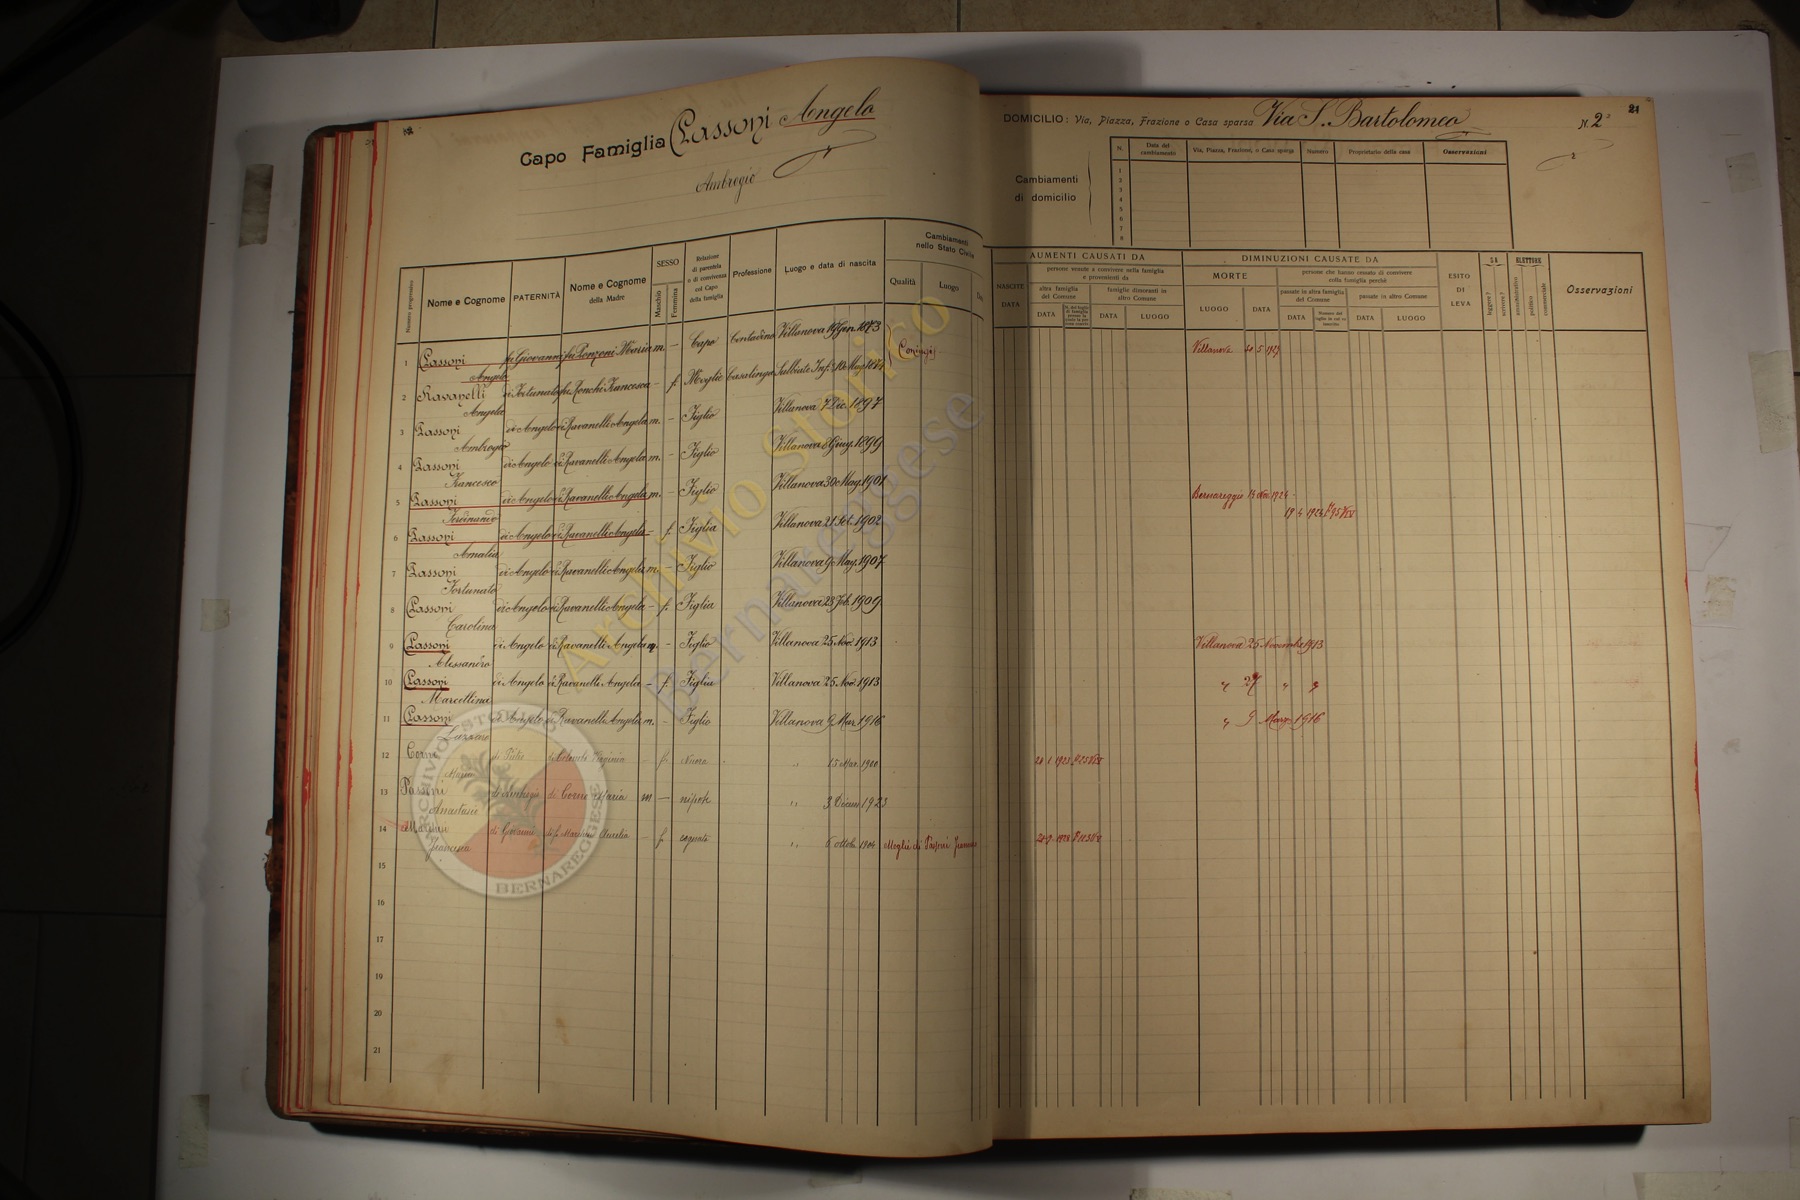 Capo Famiglia Passoni Angelo
Ambrogio
DOMICILIO: Via, Piazza, Frazione o Casa sparsa Via S. Bartolomeo N. 2
21
Cambiamenti di domicilio
N. Data del cambiamento Via, Piazza, Frazione, o Casa sparsa Numero Proprietario della casa Osservazioni
1
2
3
4
5
6
7
8
Numero progressivo Nome e Cognome PATERNITÀ Nome e Cognome della Madre SESSO Maschio Femmina Relazione di parentela o di convivenza col Capo della famiglia Professione Luogo e data di nascita Cambiamenti nello Stato Civile Qualità Luogo
NASCITE DATA AUMENTI CAUSATI DA persone venute a convivere nella famiglia o provenienti da altra famiglia del Comune DATA famiglie dimoranti in altro Comune DATA LUOGO
DIMINUZIONI CAUSATE DA MORTE LUOGO DATA persone che hanno cessato di convivere colla famiglia perchè passate in altra famiglia del Comune DATA passate in altro Comune DATA LUOGO
ESITO DI LEVA SA leggere? scrivere? ELETTORE amministrativo politico commerciale Osservazioni
1 Passoni Angelo fu Giovanni fu Ponzoni Maria m. – Capo Contadino Villanova 19 Gen. 1873 Coniug. Villanova 1929
2 Ravanelli Angela di Fortunato fu Ronchi Francesca – f. Moglie Casalinga Sulbiate Inf. Mag. 1874
3 Passoni Ambrogio di Angelo di Ravanelli Angela m. – Figlio Villanova 7 Dic. 1897
4 Passoni Francesco di Angelo di Ravanelli Angela m. – Figlio Villanova 8 Giug. 1899
5 Passoni Ferdinando di Angelo di Ravanelli Angela m. – Figlio Villanova 30 Mag. 1901 Bernareggio 1924
6 Passoni Amalia di Angelo di Ravanelli Angela – f. Figlia Villanova 21 Set. 1902 19 4 1924
7 Passoni Fortunato di Angelo di Ravanelli Angela m. – Figlio Villanova 9 Mag. 1907
8 Passoni Carolina di Angelo di Ravanelli Angela – f. Figlia Villanova 23 Feb. 1909
9 Passoni Alessandro di Angelo di Ravanelli Angela m. – Figlio Villanova 25 Nov. 1913 Villanova 25 Novembre 1913
10 Passoni Marcellina di Angelo di Ravanelli Angela – f. Figlia Villanova 25 Nov. 1913 " 27 " "
11 Passoni Lazzaro di Angelo di Ravanelli Angela m. – Figlio Villanova 9 Mar. 1916 " 9 Marzo 1916
12 Corno Maria di Pietro di Colombo Virginia – f. Nuora " 15 Mar. 1900 1923
13 Passoni Anastasio di Ambrogio di Corno Maria m – nipote " 3 Dicem 1923
14 Francesca di Giovanni Aurelia – f. cognata " 6 ottobre 1904 Moglie di Passoni 1928
15
16
17
18
19
20
21
Archivio Storico
Bernareggese
ARCHIVIO STORICO
BERNAREGGESE